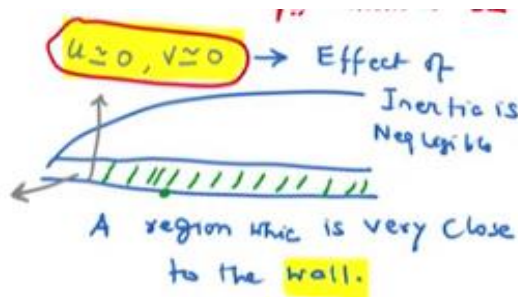 u ≃ 0, v ≃ 0 → Effect of
Inertia is
Negligible
A region whic is very close
to the wall.